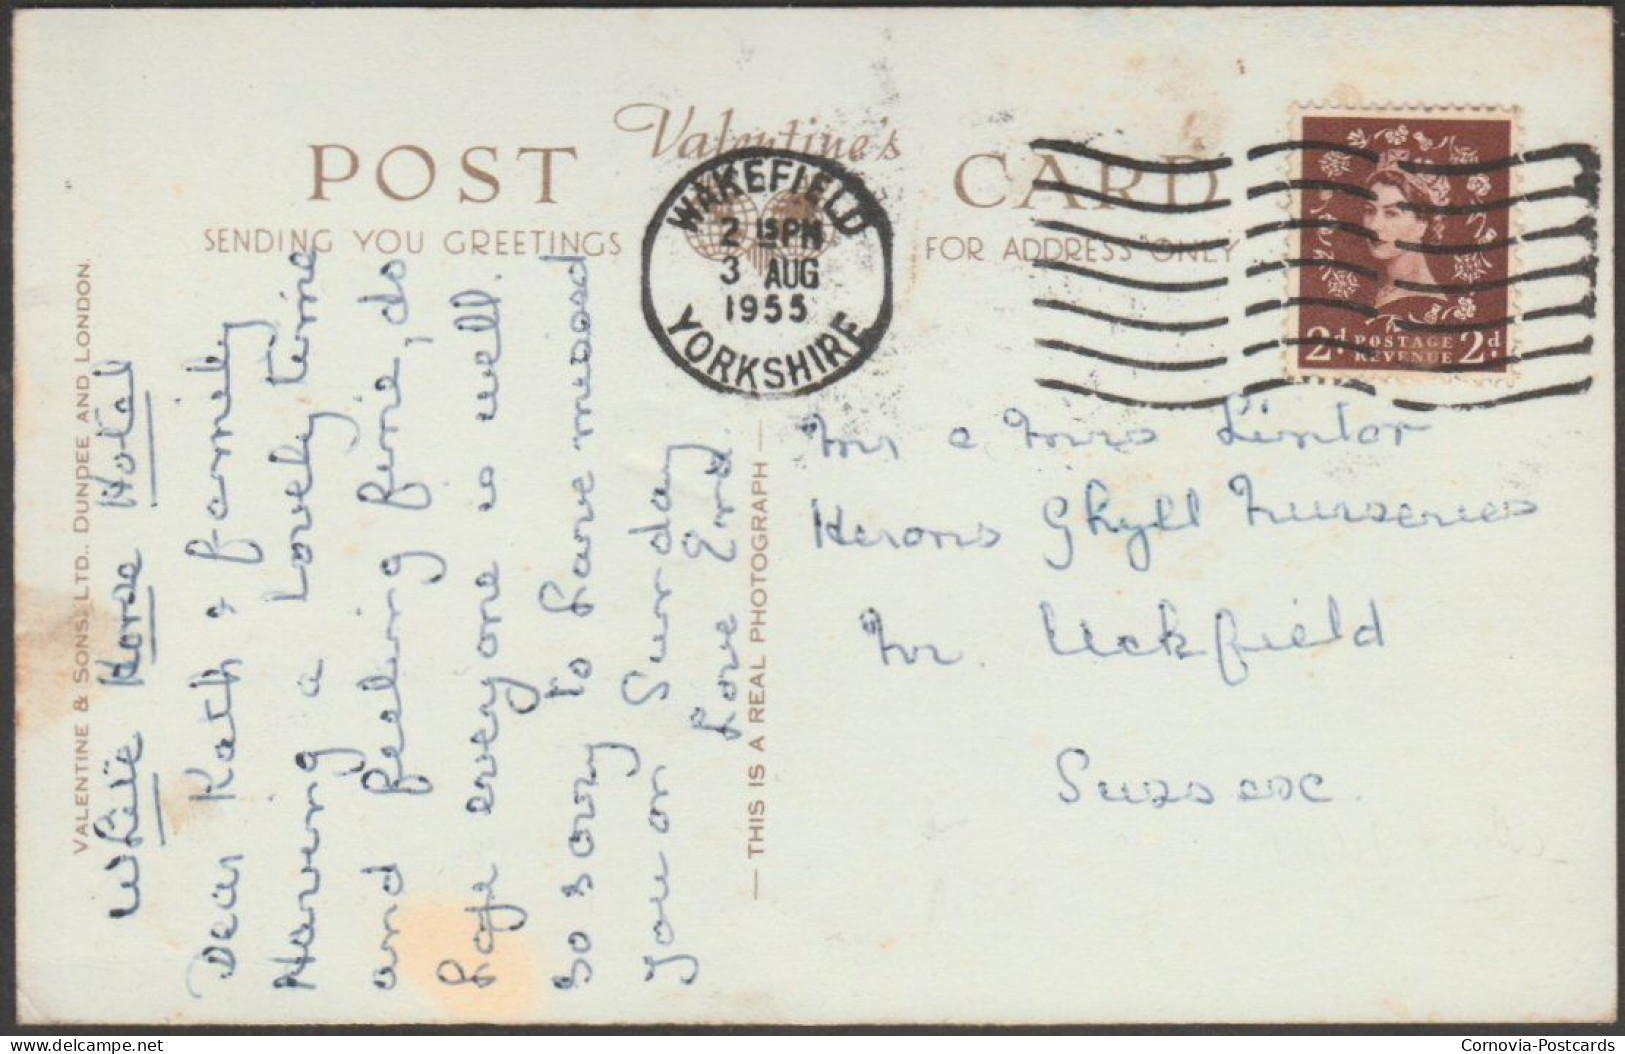 Valentine's
POST CARD
SENDING YOU GREETINGS
FOR ADDRESS ONLY
WAKEFIELD
2 15PM
3 AUG
1955
YORKSHIRE
2d. POSTAGE REVENUE 2d.
VALENTINE & SONS, LTD., DUNDEE AND LONDON.
White Horse Hotel
Dear Kath & family
Having a lovely time
and feeling fine, do
hope everyone is well.
So sorry to have missed
you on Sunday
Love Enid
— THIS IS A REAL PHOTOGRAPH —
Mr & Mrs Lintor
Herons Ghyll Nurseries
Nr. Uckfield
Sussex.
delcampe.net
Cornovia-Postcards